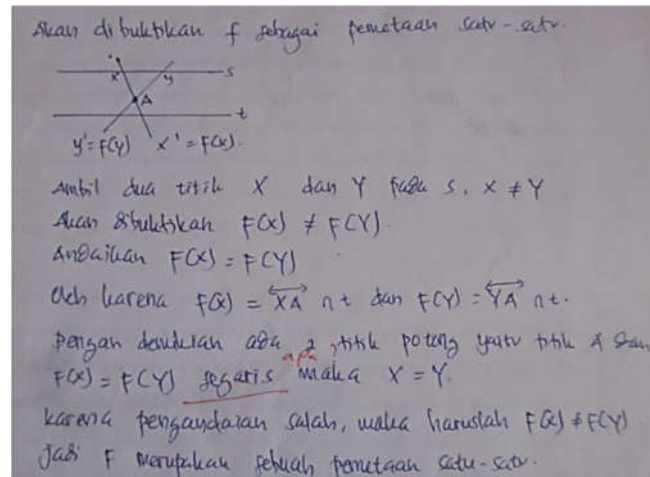 Akan dibuktikan f sebagai pemetaan satu-satu.
X Y s
A
t
Y'=F(Y) X'=F(X).
Ambil dua titik X dan Y pada s. X ≠ Y
Akan dibuktikan F(X) ≠ F(Y)
Andaikan F(X) = F(Y)
Oleh karena F(X) = \overleftrightarrow{XA} ∩ t dan F(Y) = \overleftrightarrow{YA} ∩ t.
Dengan demikian ada 2 titik potong yaitu titik A dan
apa?
F(X) = F(Y) segaris maka X = Y.
karena pengandaian salah, maka haruslah F(X) ≠ F(Y)
Jadi F merupakan sebuah pemetaan satu-satu.